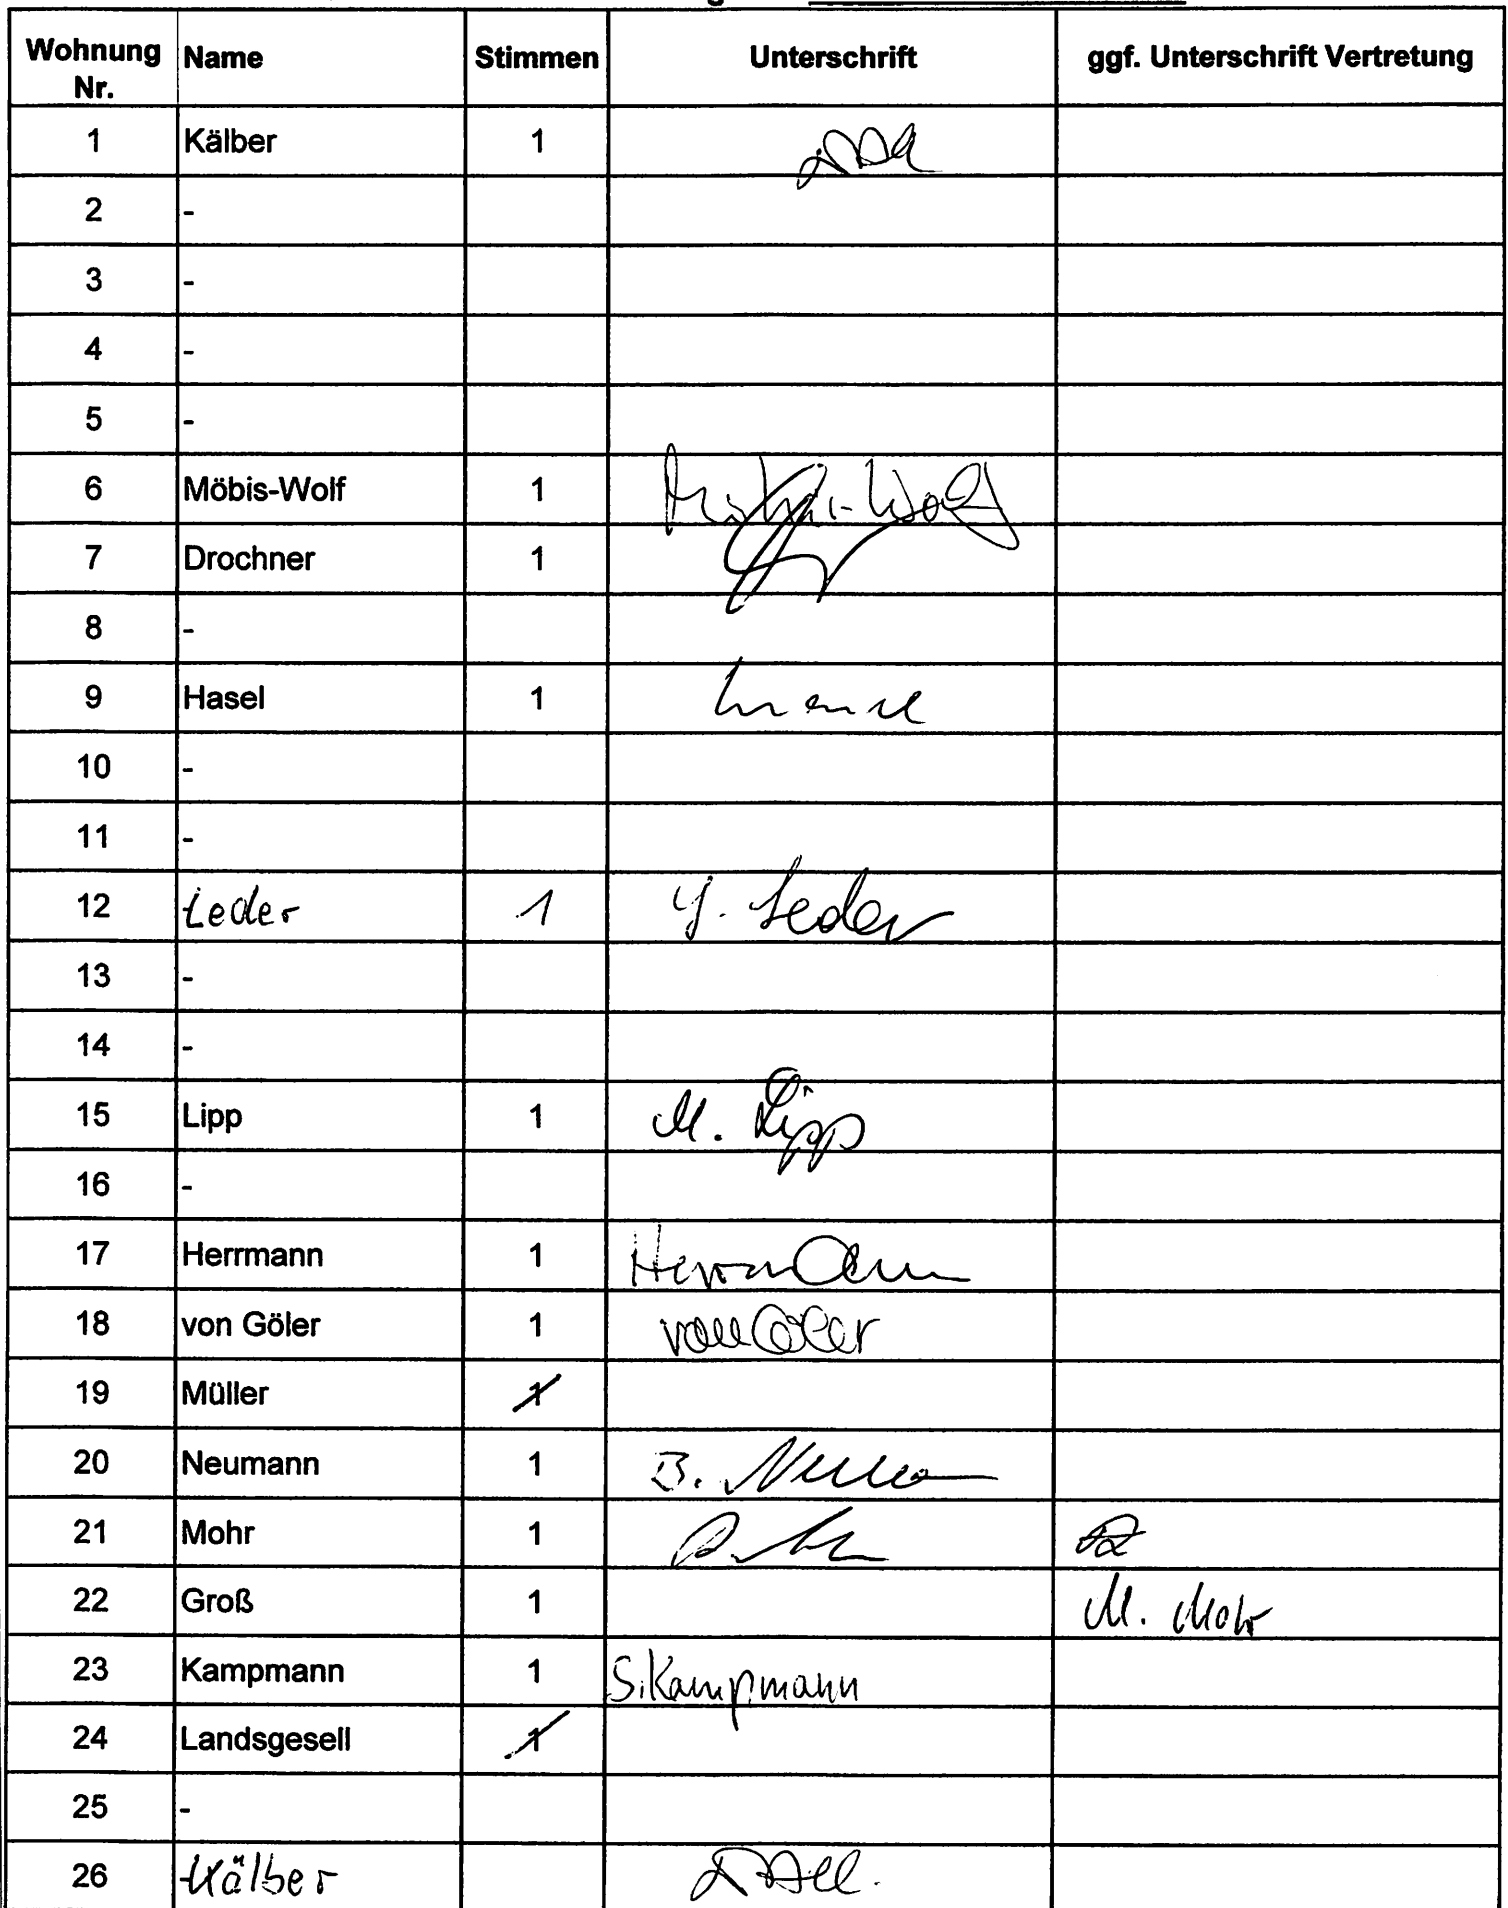 Wohnung Nr. Name Stimmen Unterschrift ggf. Unterschrift Vertretung
1 Kälber 1
2 -
3 -
4 -
5 -
6 Möbis-Wolf 1 Möbis-Wolf
7 Drochner 1
8 -
9 Hasel 1
10 -
11 -
12 Leder 1 Y. Leder
13 -
14 -
15 Lipp 1 M. Lipp
16 -
17 Herrmann 1 Herrmann
18 von Göler 1 von Göler
19 Müller 1
20 Neumann 1 B. Neumann
21 Mohr 1
22 Groß 1 M. Mohr
23 Kampmann 1 S. Kampmann
24 Landsgesell 1
25 -
26 Kälber